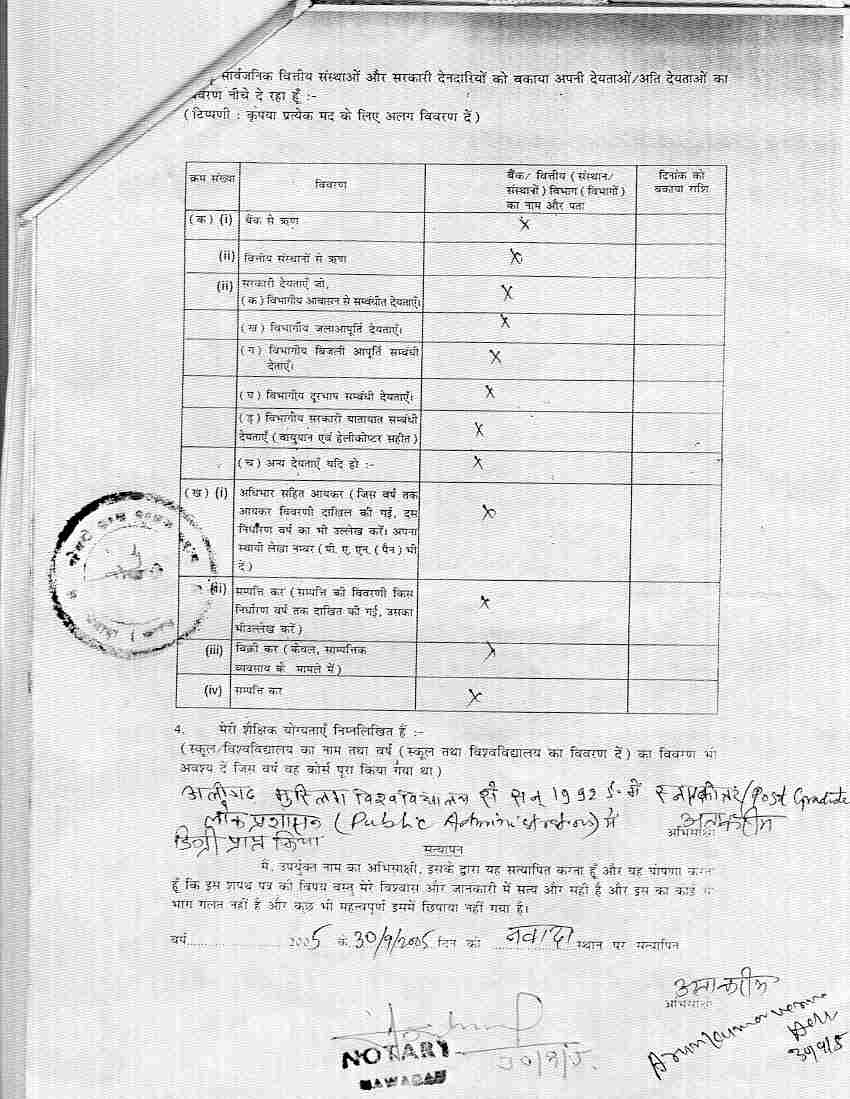 सार्वजनिक वित्तीय संस्थाओं और सरकारी देनदारियों को बकाया अपनी देयताओं/अति देयताओं का
विवरण नीचे दे रहा हूँ :-
(टिप्पणी : कृपया प्रत्येक मद के लिए अलग विवरण दें)
क्रम संख्या विवरण बैंक/ वित्तीय (संस्थान/ संस्थानों) विभाग (विभागों) का नाम और पता दिनांक को बकाया राशि
(क) (i) बैंक से ऋण X
(ii) वित्तीय संस्थानों से ऋण X
(ii) सरकारी देयताएँ जो,
(क) विभागीय आवासन से सम्बंधीत देयताएँ। X
(ख) विभागीय जलाआपूर्ति देयताएँ। X
(ग) विभागीय बिजली आपूर्ति सम्बंधी
देताएँ। X
(घ) विभागीय दूरभाष सम्बंधी देयताएँ। X
(ड़) विभागीय सरकारी यातायात सम्बंधी
देयताएँ (वायुयान एवं हेलीकोप्टर सहीत) X
(च) अन्य देयताएँ यदि हो :- X
(ख) (i) अधिभार सहित आयकर (जिस वर्ष तक
आयकर विवरणी दाखिल की गई, उस
निर्धारण वर्ष का भी उल्लेख करें। अपना
स्थायी लेखा नम्बर (पी. ए. एन. (पैन) भी
दें) X
(ii) सम्पत्ति कर (सम्पत्ति की विवरणी किस
निर्धारण वर्ष तक दाखित की गई, उसका
भीउल्लेख करें) X
(iii) बिक्री कर (केवल, साम्पत्तिक
व्यवसाय के मामले में) X
(iv) सम्पत्ति कर X
4. मेरी शैक्षिक योग्यताएँ निम्नलिखित हैं :-
(स्कूल/विश्वविद्यालय का नाम तथा वर्ष (स्कूल तथा विश्वविद्यालय का विवरण दें) का विवरण भी
अवश्य दें जिस वर्ष वह कोर्स पूरा किया गया था)
अलीगढ़ मुस्लिम विश्वविद्यालय से सन् 1992 ई० में स्नातकोत्तर/Post Graduate
लोक प्रशासन (Public Administration) में
डिग्री प्राप्त किया
अभिसाक्षी
सत्यापन
मैं, उपर्युक्त नाम का अभिसाक्षी, इसके द्वारा यह सत्यापित करता हूँ और यह घोषणा करता
हूँ कि इस शपथ पत्र की विषय वस्तु मेरे विश्वास और जानकारी में सत्य और सही है और इस का कोई भी
भाग गलत नहीं है और कुछ भी महत्वपूर्ण इसमें छिपाया नहीं गया है।
वर्ष.................. 2005 के 30/9/2005 दिन को नवादा स्थान पर सत्यापित
अभिसाक्षी
NOTARY
NAWADAH
30/9/5